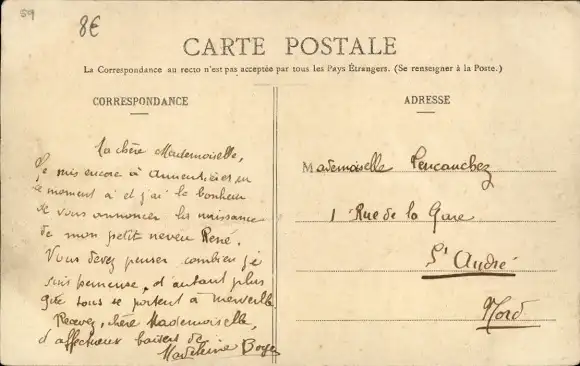 59
8€
CARTE POSTALE
La Correspondance au recto n'est pas acceptée par tous les Pays Étrangers. (Se renseigner à la Poste.)
CORRESPONDANCE
Ma chère Mademoiselle,
Je suis encore à Armentières en
ce moment à et j'ai le bonheur
de vous annoncer la naissance
de mon petit neveu René.
Vous devez penser combien je
suis heureuse, d'autant plus
que tous se portent à merveille
Recevez, chère Mademoiselle,
d'affectueux baisers de
Madeleine
ADRESSE
Mademoiselle
1 Rue de la Gare
St André
Nord